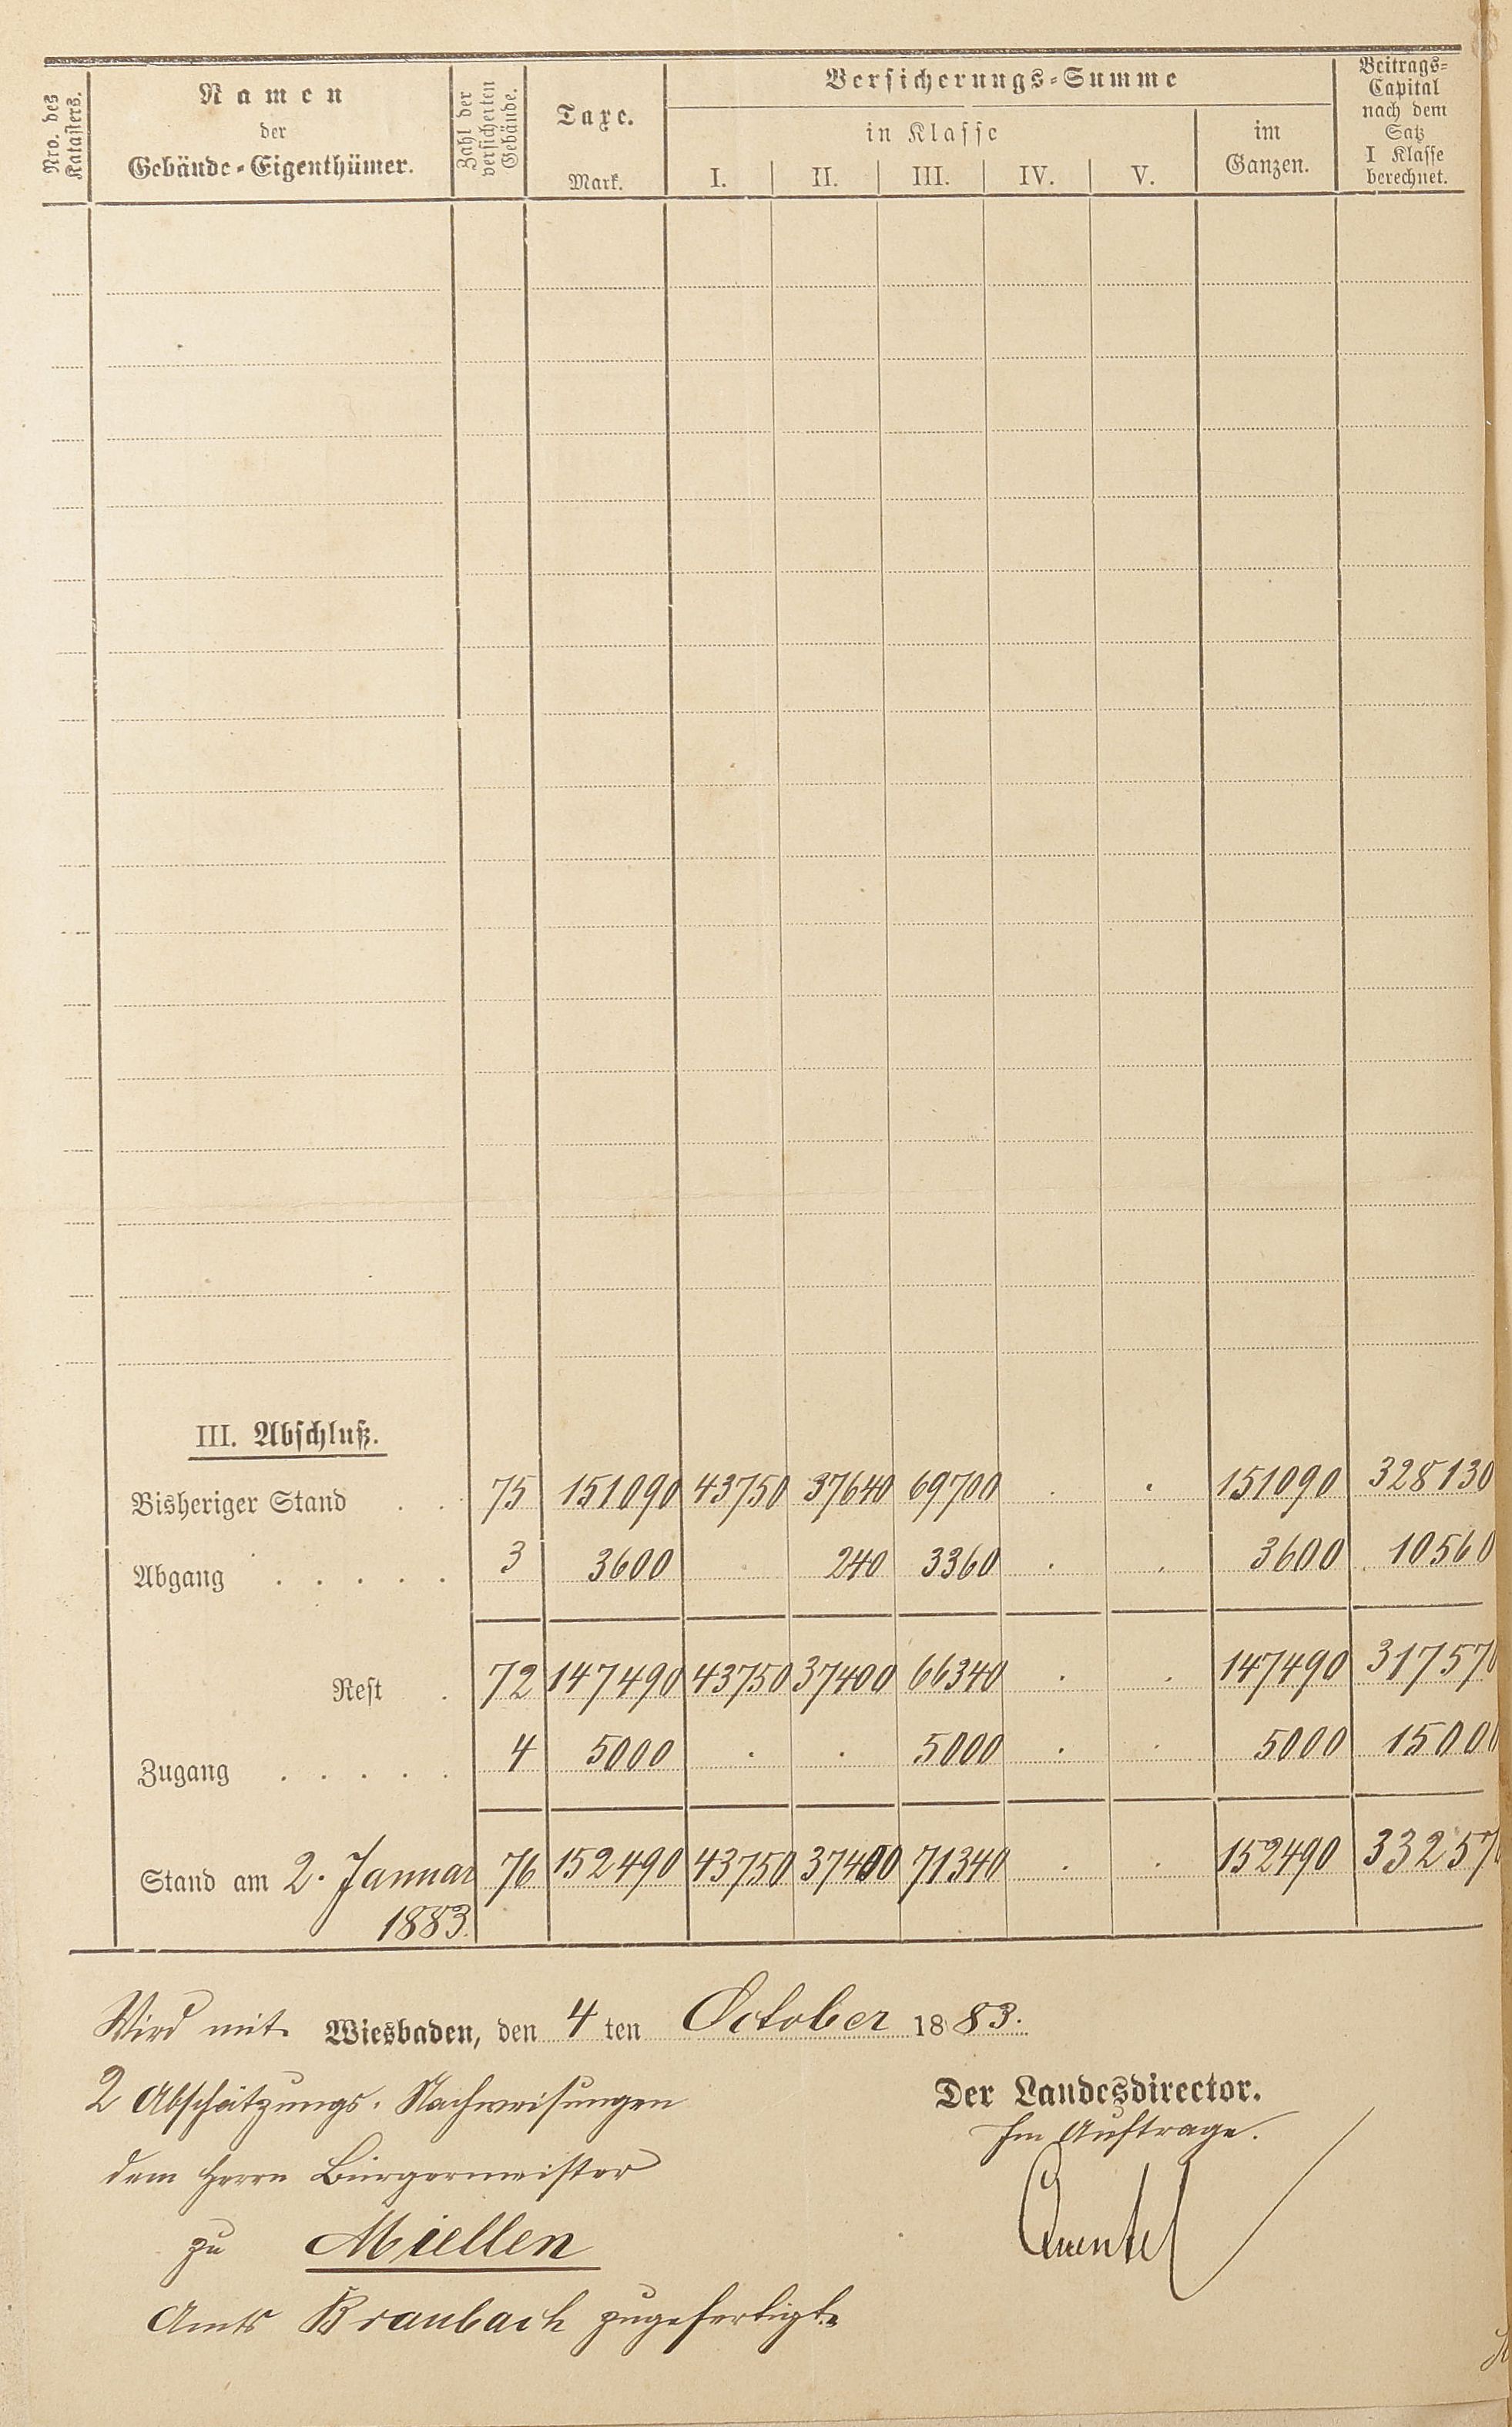 Nro. des Katasters.
Namen
der
Gebäude-Eigenthümer.
Zahl der versicherten Gebäude.
Taxe.
Mark.
Versicherungs-Summe
in Klasse
I. II. III. IV. V.
im
Ganzen.
Beitrags-
Capital
nach dem
Satz
I Klasse
berechnet.
III. Abschluß.
Bisheriger Stand . . 75 151090 43750 37640 69700 . . 151090 328130
Abgang . . . . . 3 3600 . 240 3360 . . 3600 10560
Rest . 72 147490 43750 37400 66340 . . 147490 317570
Zugang . . . . . 4 5000 . . 5000 . . 5000 15000
Stand am 2. Januar 76 152490 43750 37400 71340 . . 152490 332570
1883.
Wird mit Wiesbaden, den 4 ten October 1883.
2 Abschätzungs-Nachweisungen
Der Landesdirector.
Im Auftrage.
dem Herrn Bürgermeister
zu Miellen
Amts Braubach zugefertigt.